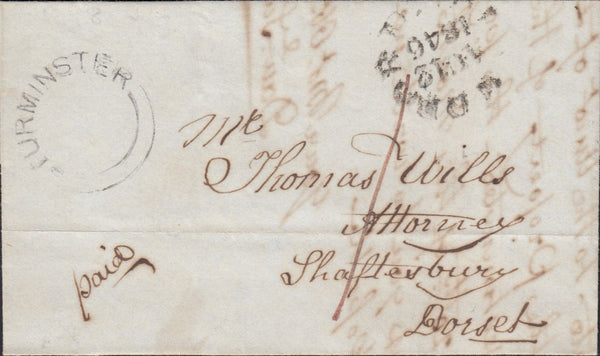 STURMINSTER
1846
Mr
Thomas Wills
Attorney
Shaftesbury
Dorset
paid